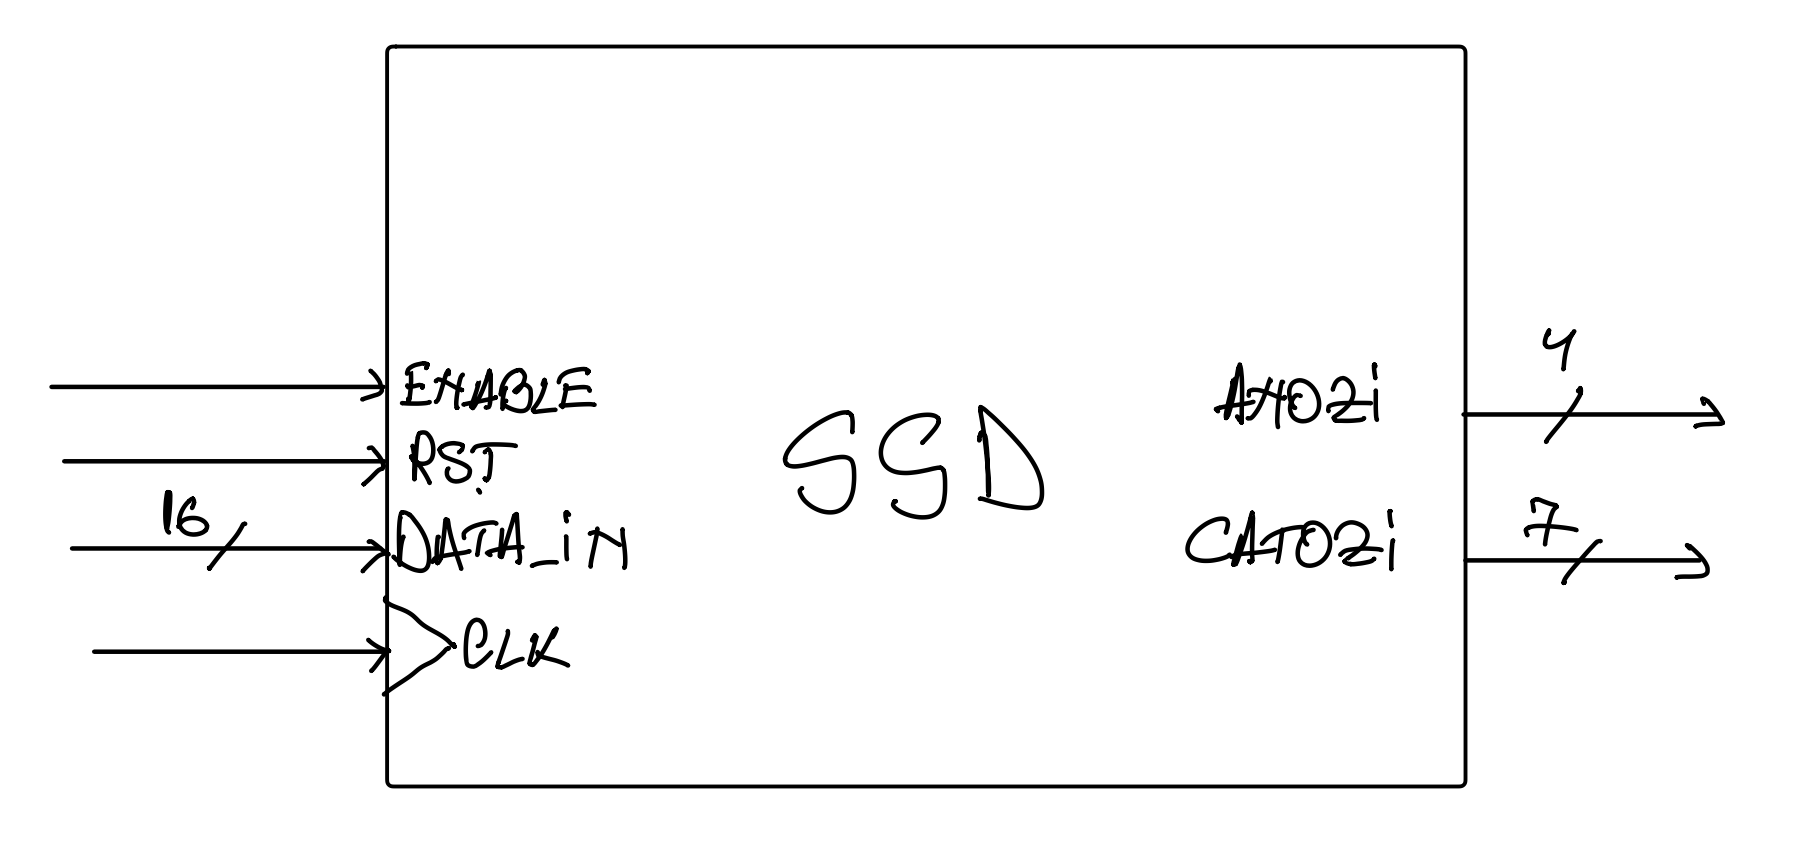 ENABLE
RST
16
DATA_iN
CLK
SSD
ANOZi
4
CATOZi
7